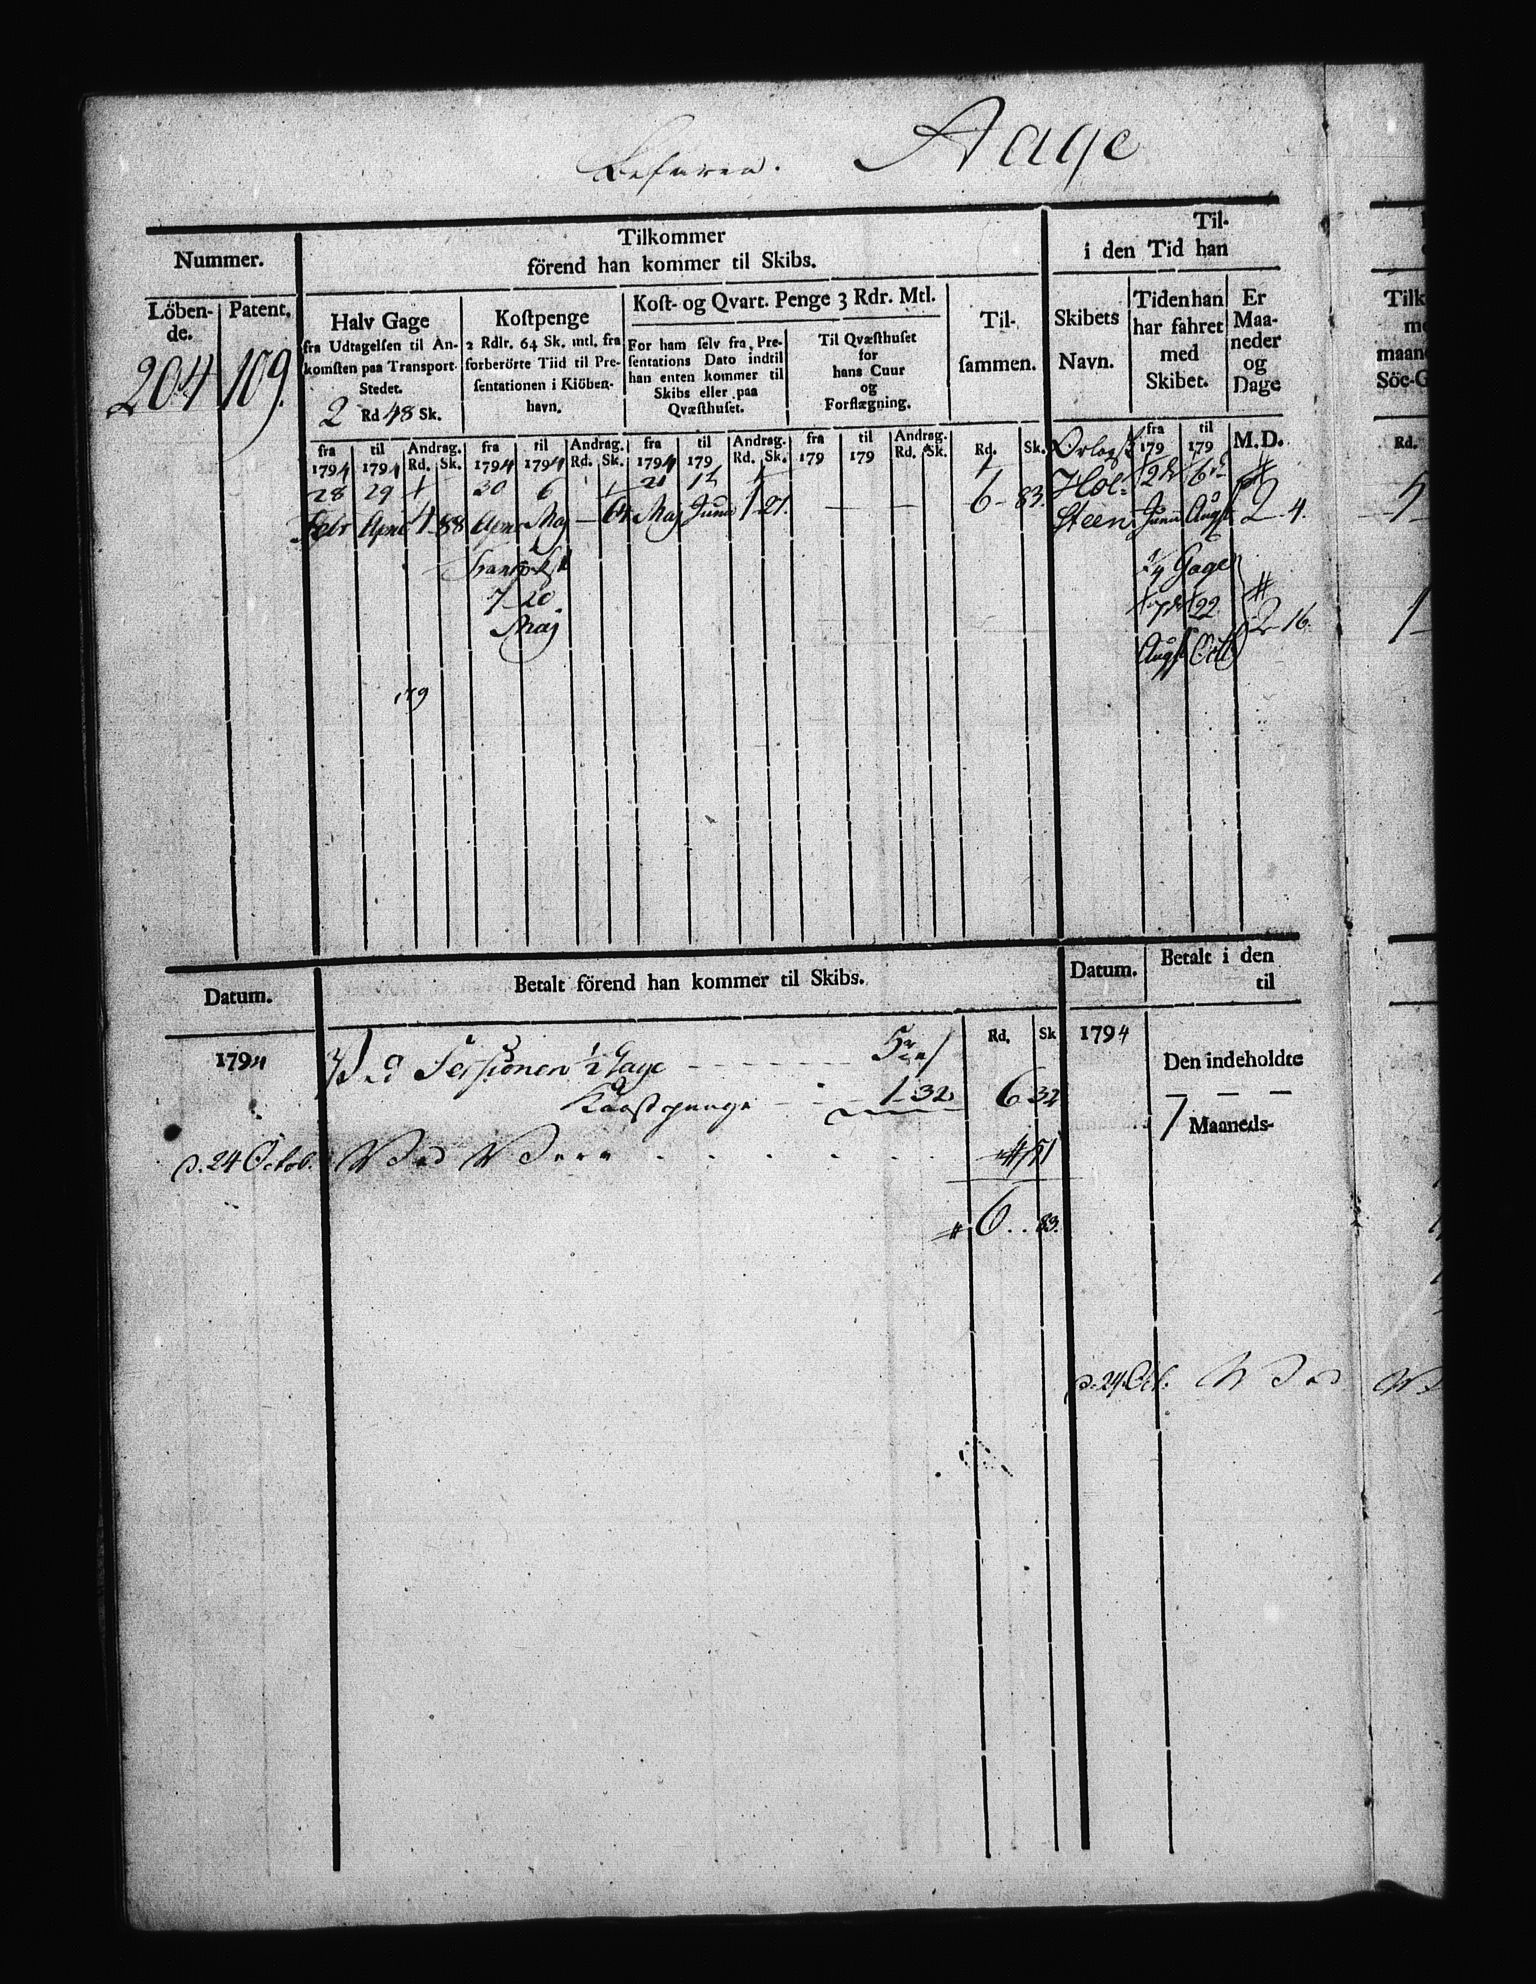 Befaren. Aage
Nummer.
Tilkommer
förend han kommer til Skibs.
Til-
i den Tid han
Löben-
de.
Patent.
204 109.
Halv Gage
fra Udtagelsen til An-
komsten paa Transport
Stedet.
2 Rd 48 Sk.
Kostpenge
2 Rdlr. 64 Sk. mtl. fra
forberörte Tiid til Pre-
sentationen i Kiöben-
havn.
Kost- og Qvart. Penge 3 Rdr. Mtl.
For ham selv fra Pre-
sentations Dato indtil
han enten kommer til
Skibs eller paa
Qvæsthuset.
Til Qvæsthuset
for
hans Cuur
og
Forflægning.
Til-
sammen.
Skibets
Navn.
Tiden han
har fahret
med
Skibet.
Er
Maa-
neder
og
Dage
fra til Andrag. fra til Andrag. fra til Andrag. fra til Andrag. fra til
1794 1794 Rd. Sk. 1794 1794 Rd. Sk. 1794 179 Rd. Sk. 179 179 Rd. Sk. Rd. Sk. 179 179 M. D.
28 29 30 6 21 12 Orlogsk
Febr April 4 88 April Maj 64 Maj Junii 1 21. 6 83. Hol- Steen 12 6 Junii Aug 2 4.
Transport 1/4 Gage
7 20 7 22 2 16.
Maj Aug Oct
179
Datum.
Betalt förend han kommer til Skibs.
Datum.
Betalt i den
til
Rd. Sk
1794
Ved Sessionen 1/2 Gage 5
1794
Den indeholdte
Kaastpenge 1 32 6 32
7 Maaneds-
d. 24 Octob. 51
6 83.
d. 24 Oct.
Tilk
maan
Söe-G
Rd.